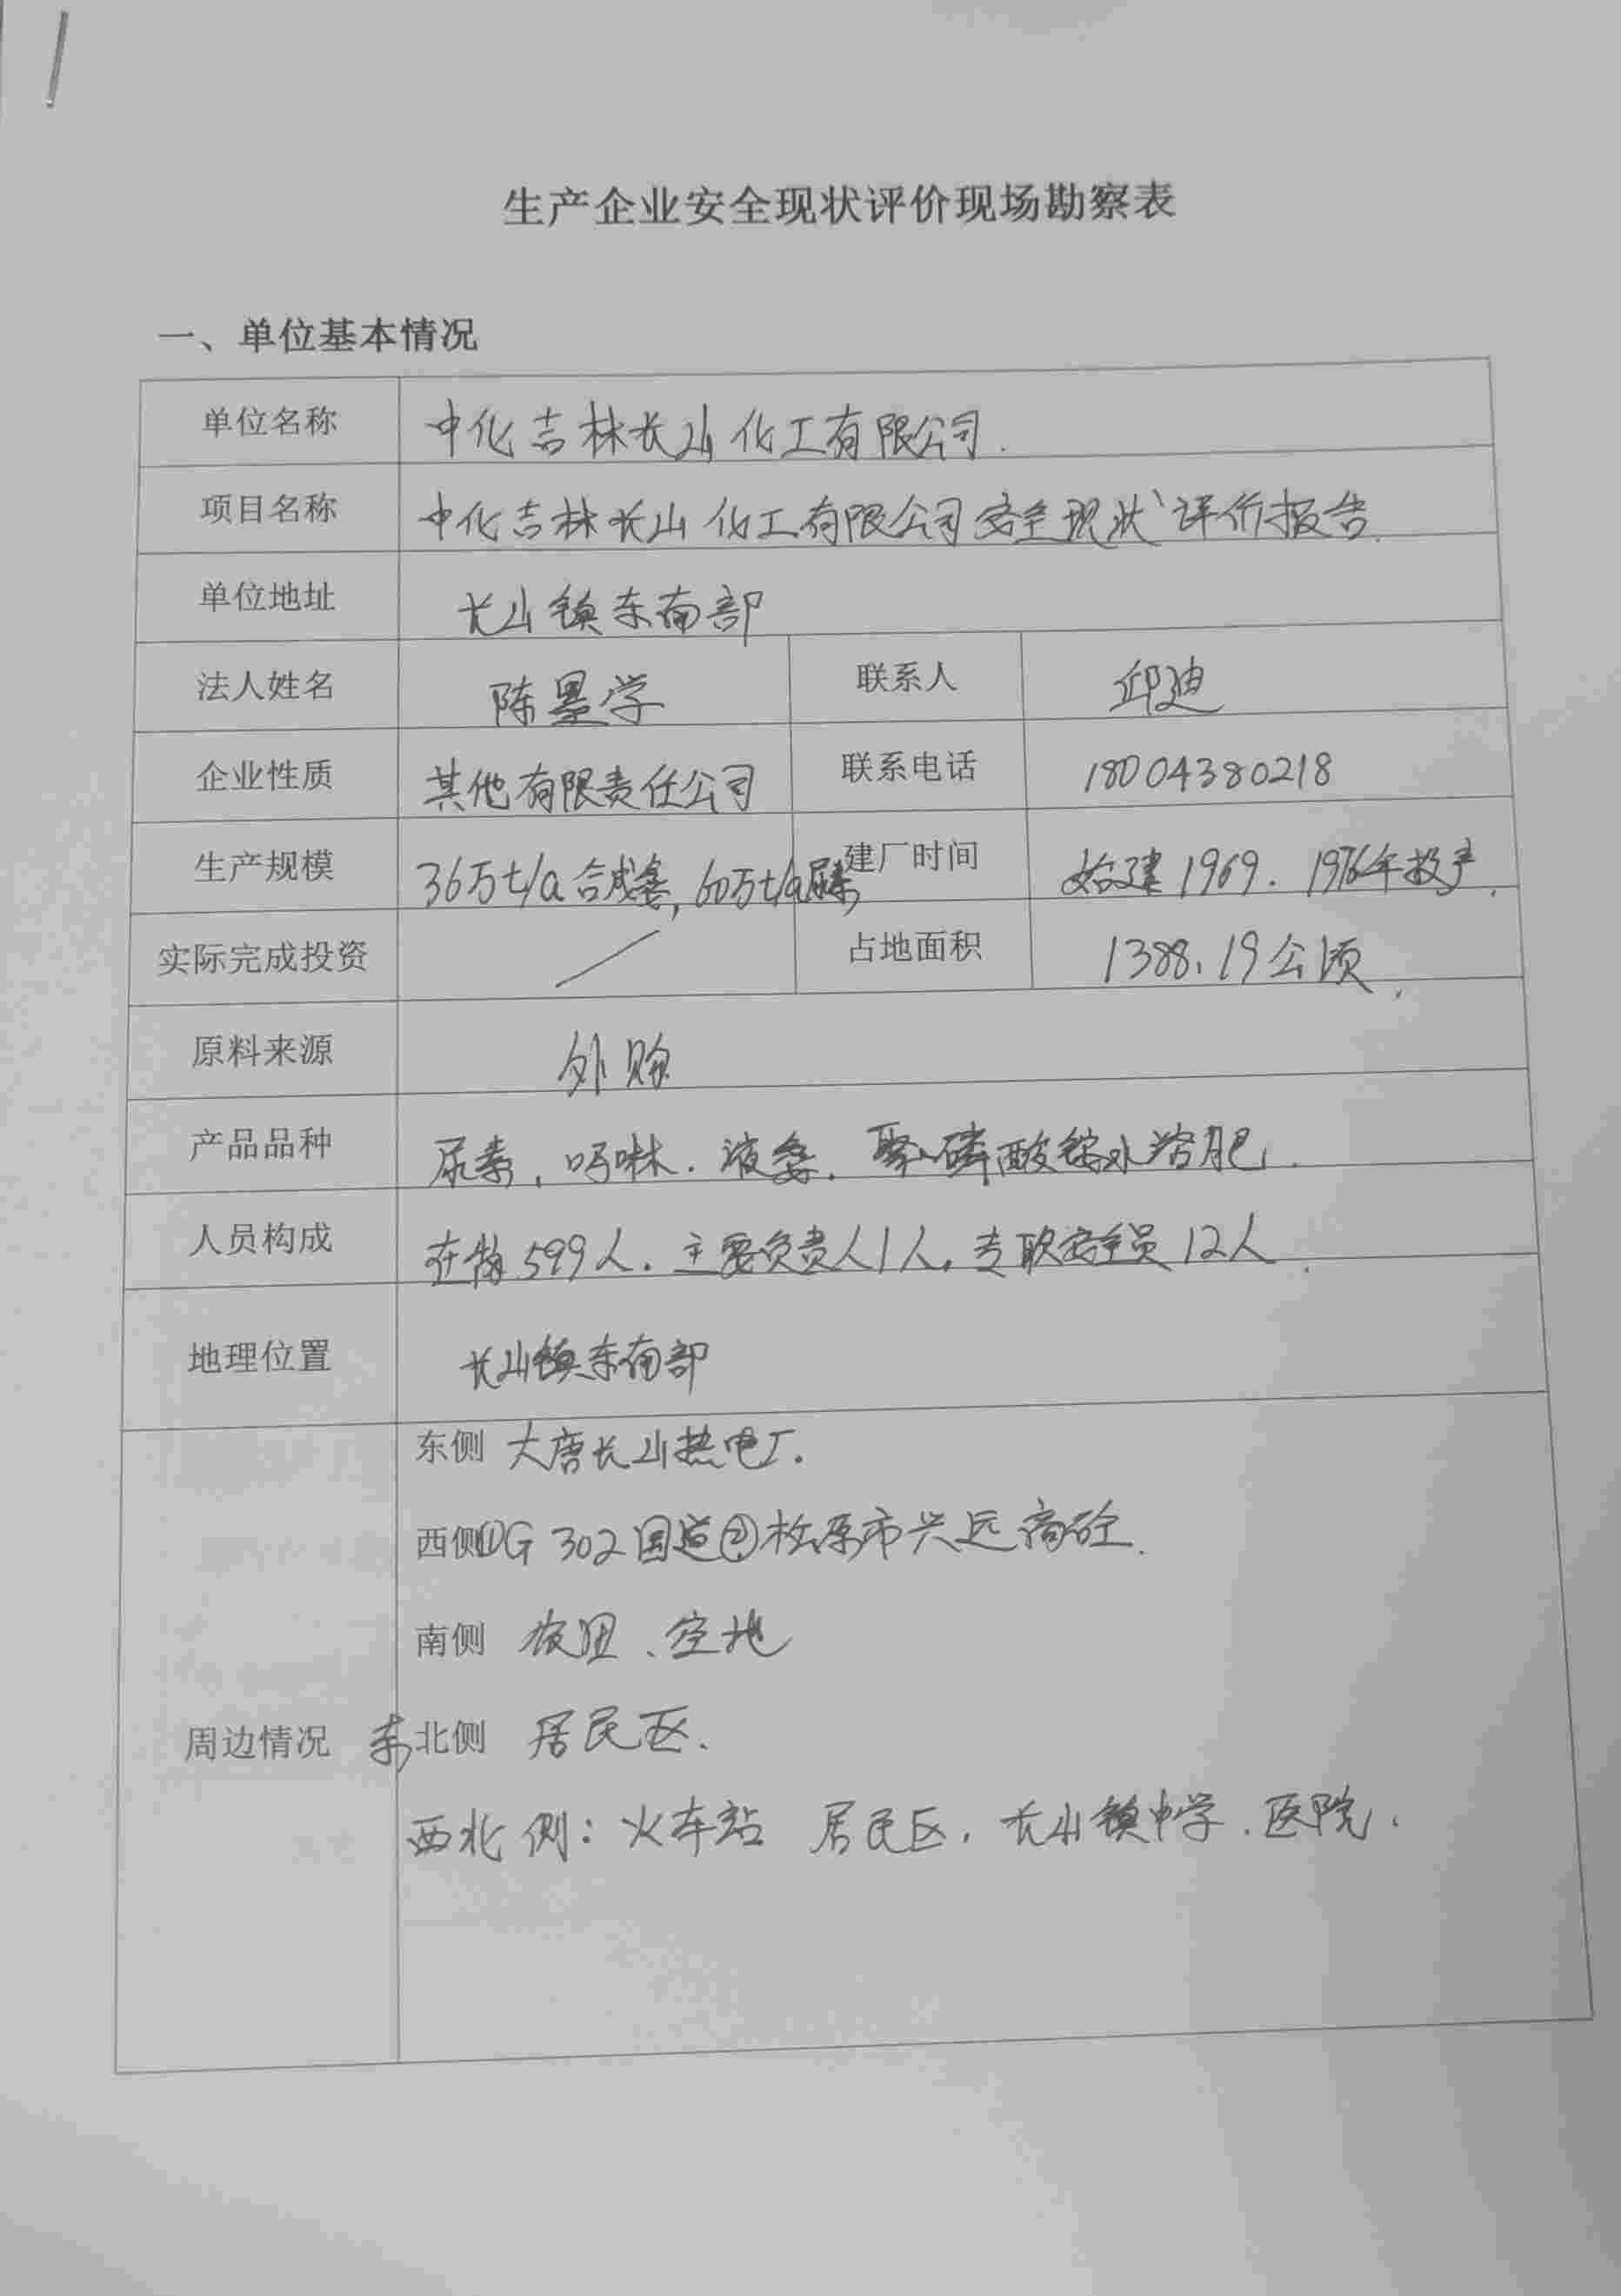 生产企业安全现状评价现场勘察表
一、单位基本情况
单位名称 中化吉林长山化工有限公司.
项目名称 中化吉林长山化工有限公司安全现状评价报告.
单位地址 长山镇东南部
法人姓名 陈墨学 联系人 邱迪
企业性质 其他有限责任公司 联系电话 18004380218
生产规模 36万t/a合成氨,60万t/a尿素, 建厂时间 始建1969.1976年投产.
实际完成投资 / 占地面积 1388.19公顷.
原料来源 外购
产品品种 尿素,吗啉.液氨.聚磷酸铵水溶肥.
人员构成 在岗599人.主要负责人1人.专职安全员12人.
地理位置 长山镇东南部
东侧 大唐长山热电厂.
西侧①G302国道②松原市兴远商砼.
南侧 农田、空地
周边情况 东北侧 居民区.
西北侧:火车站 居民区.长山镇中学.医院.